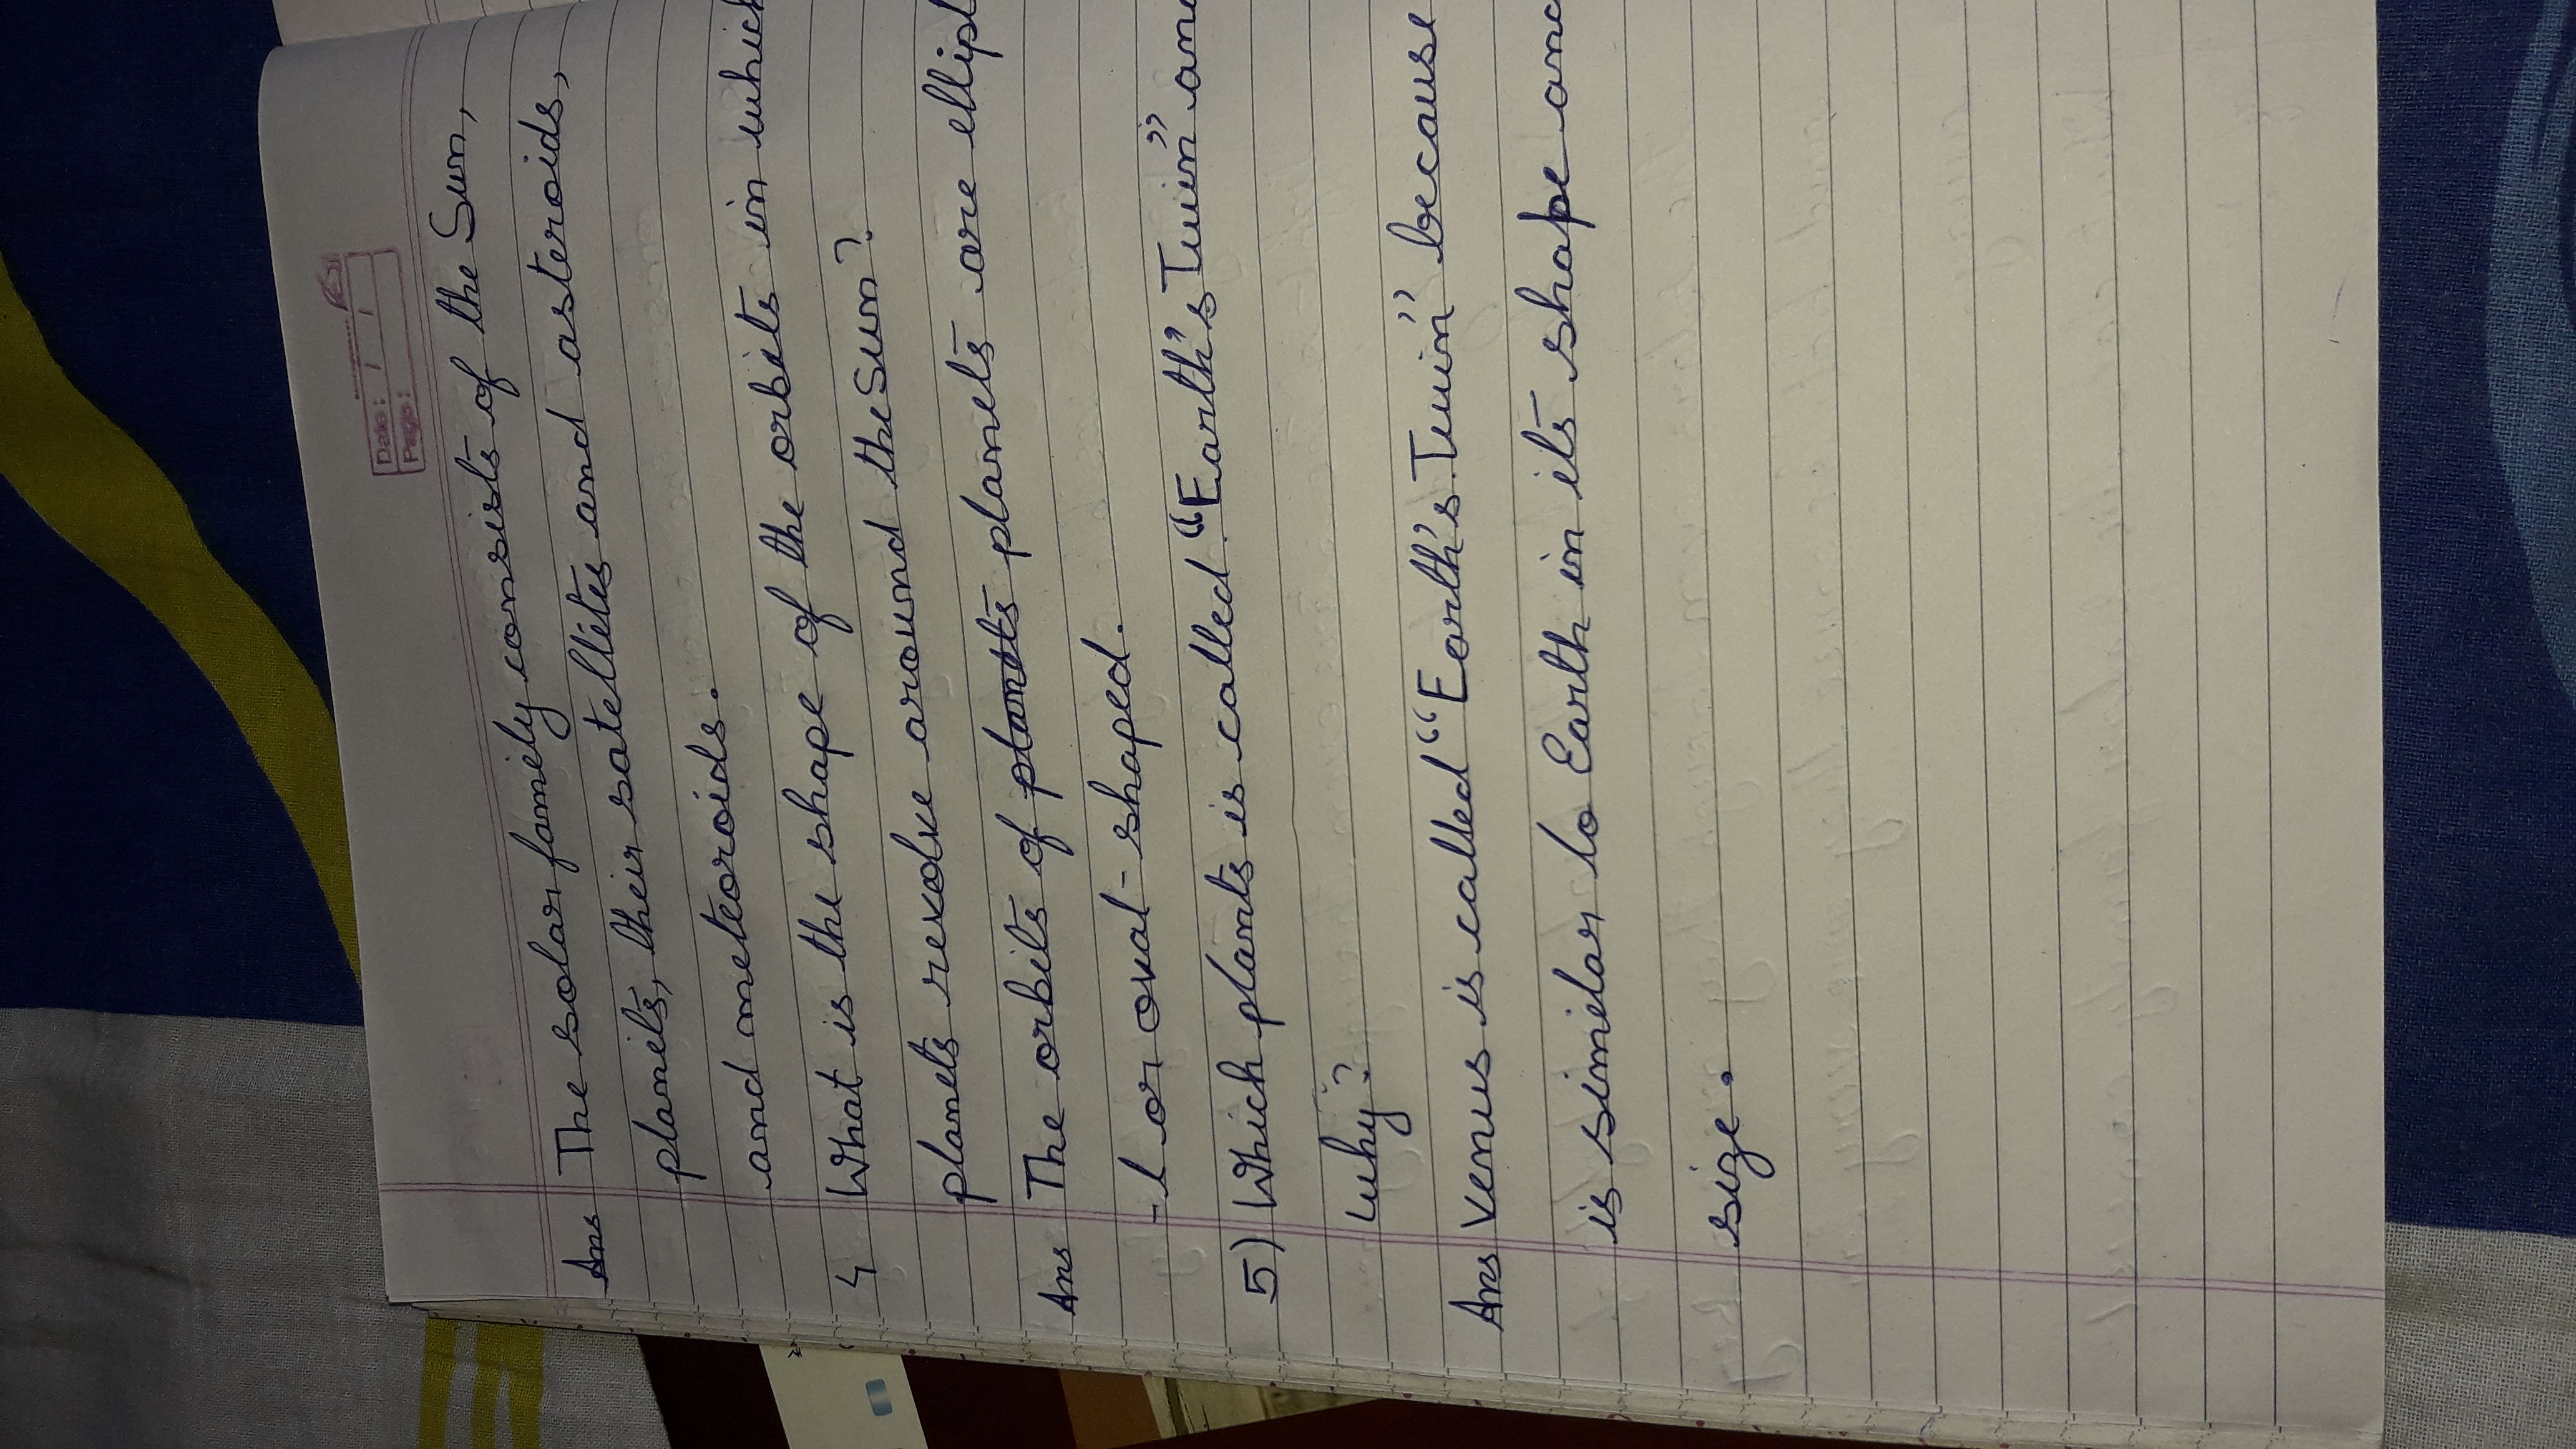 Date: / /
Page:
Ans The solar family consists of the Sun,
planets, their satellites and asteroids,
and meteoroids.
4 What is the shape of the orbits in which
planets revolve around the Sun?
Ans The orbits of planets planets are ellipt
-l or oval-shaped.
5) Which plants is called "Earth's Twin" and
why?
Ans Venus is called "Earth's Twin" because
is similar to Earth in its shape and
size.